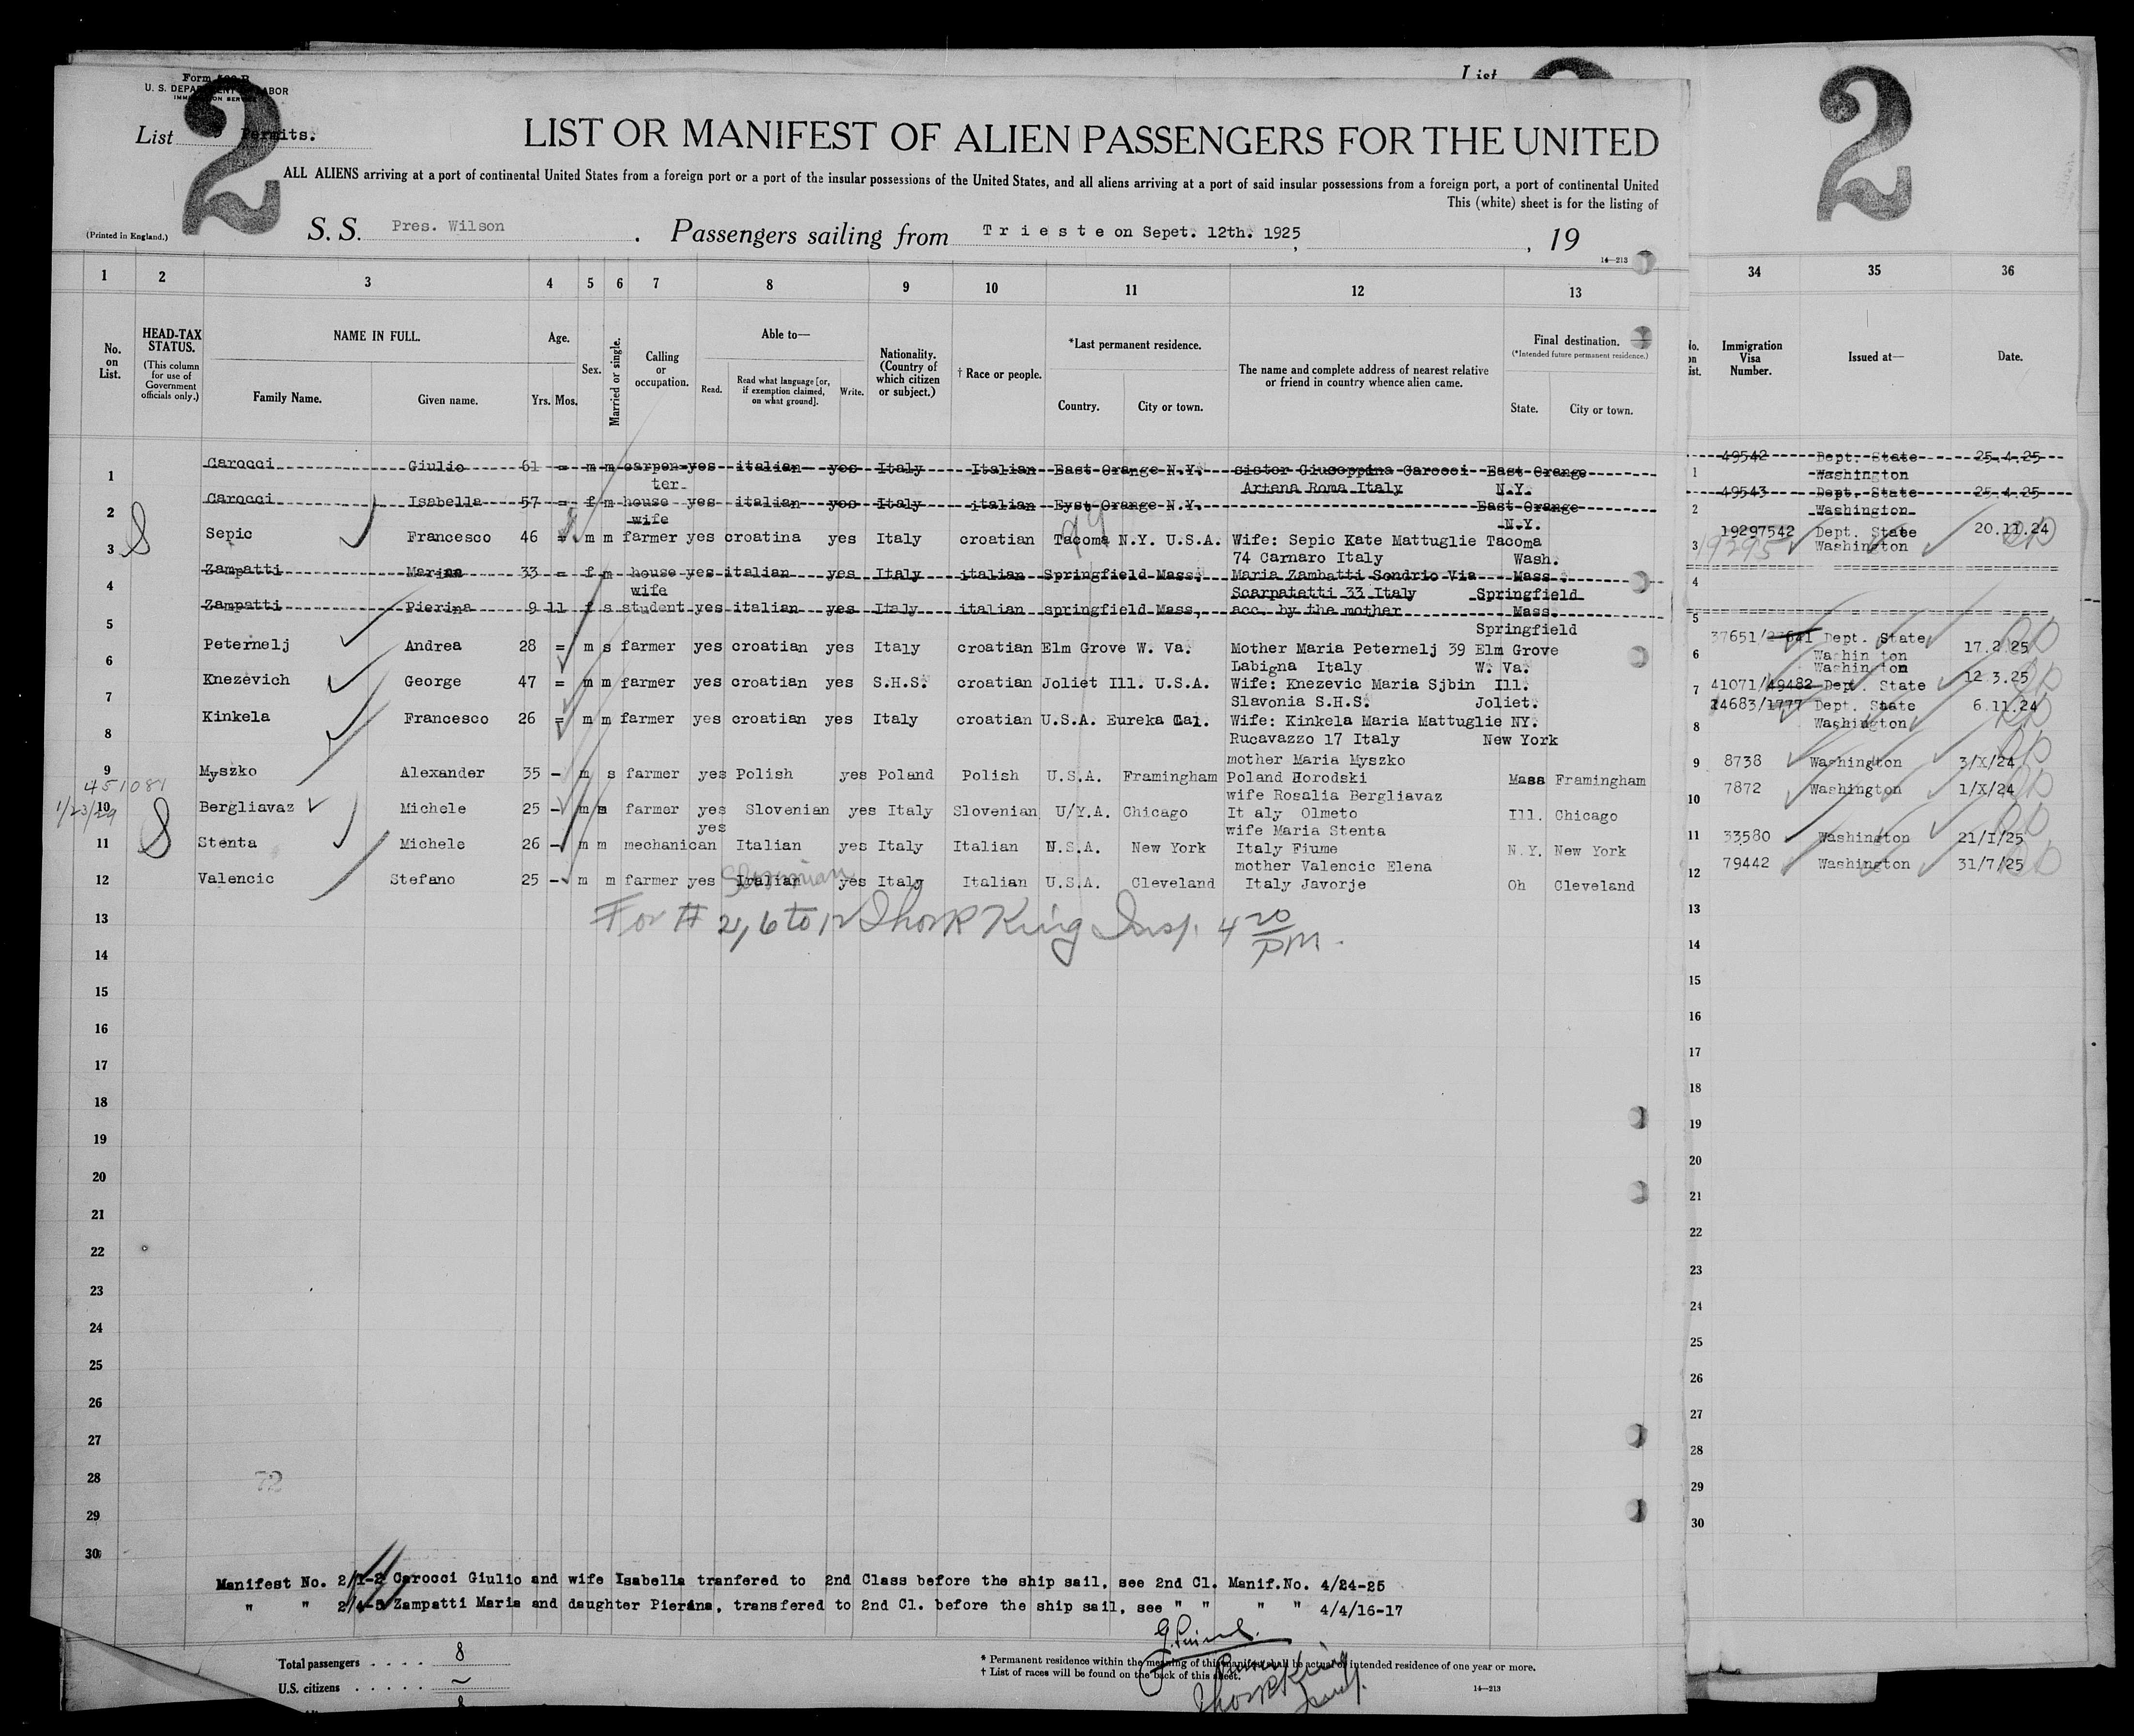 Form 500 B
U. S. DEPARTMENT OF LABOR
IMMIGRATION SERVICE
List
2
2
List Permits.
LIST OR MANIFEST OF ALIEN PASSENGERS FOR THE UNITED
ALL ALIENS arriving at a port of continental United States from a foreign port or a port of the insular possessions of the United States, and all aliens arriving at a port of said insular possessions from a foreign port, a port of continental United
This (white) sheet is for the listing of
(Printed in England.)
S. S. Pres. Wilson . Passengers sailing from Trieste on Sepet. 12th. 1925, , 19
14—213
1 2 3 4 5 6 7 8 9 10 11 12 13 34 35 36
No. on List.
HEAD-TAX STATUS.
(This column for use of Government officials only.)
NAME IN FULL.
Family Name. Given name.
Age.
Yrs. Mos.
Sex.
Married or single.
Calling or occupation.
Able to—
Read. Read what language [or, if exemption claimed, on what ground]. Write.
Nationality. (Country of which citizen or subject.)
† Race or people.
*Last permanent residence.
Country. City or town.
The name and complete address of nearest relative or friend in country whence alien came.
Final destination.
(*Intended future permanent residence.)
State. City or town.
Immigration Visa Number.
Issued at—
Date.
1 Carocci Giulio 61 = m m carpen yes italian yes Italy Italian East Orange N.Y. sister Giuseppina Carocci East Orange 49542 Dept. State 25.4.25
ter Artena Roma Italy N.Y. Washington
2 Carocci Isabella 57 = f m house yes italian yes Italy italian Eyst Orange N.Y. East Orange 49543 Dept. State 25.4.25
wife N.Y. Washington
3 Sepic Francesco 46 = m m farmer yes croatina yes Italy croatian Tacoma N.Y. U.S.A. Wife: Sepic Kate Mattuglie Tacoma 19297542 Dept. State 20.11.24
74 Carnaro Italy Wash. 19295 Washington
4 Zampatti Marina 33 = f m house yes italian yes Italy italian Springfield Mass. Maria Zambatti Sondrio Via Mass.
wife Scarpatetti 33 Italy Springfield
5 Zampatti Pierina 9 11 f s student yes italian yes Italy italian springfield Mass, acc. by the mother Mass.
Springfield
6 Peternelj Andrea 28 = m s farmer yes croatian yes Italy croatian Elm Grove W. Va. Mother Maria Peternelj 39 Elm Grove 37651/27641 Dept. State 17.2.25
Labigna Italy W. Va. Washin ton
Washin ton
7 Knezevich George 47 = m m farmer yes croatian yes S.H.S. croatian Joliet Ill. U.S.A. Wife: Knezevic Maria Sjbin Ill. 41071/49482 Dept. State 12 3.25
Slavonia S.H.S. Joliet.
8 Kinkela Francesco 26 = m m farmer yes croatian yes Italy croatian U.S.A. Eureka Cai. Wife: Kinkela Maria Mattuglie NY. 14683/1777 Dept. State 6.11.24
Rucavazzo 17 Italy New York Washington
mother Maria Myszko
9 Myszko Alexander 35 - m s farmer yes Polish yes Poland Polish U.S.A. Framingham Poland Horodski Mass Framingham 8738 Washington 3/X/24
451081
wife Rosalia Bergliavaz
1/23/29
10 Bergliavaz Michele 25 - m m farmer yes Slovenian yes Italy Slovenian U/Y.A. Chicago It aly Olmeto Ill. Chicago 7872 Washington 1/X/24
yes wife Maria Stenta
11 Stenta Michele 26 - m m mechanican Italian yes Italy Italian N.S.A. New York Italy Fiume N.Y. New York 33580 Washington 21/I/25
mother Valencic Elena
Slovenian
12 Valencic Stefano 25 - m m farmer yes Italian yes Italy Italian U.S.A. Cleveland Italy Javorje Oh Cleveland 79442 Washington 31/7/25
For # 2, 6 to 12 Thork King Insp. 4 20 pm.
13 13
14 14
15 15
16 16
17 17
18 18
19 19
20 20
21 21
22 22
23 23
24 24
25 25
26 26
27 27
28 72 28
29 29
30 30
Manifest No. 2/1-2 Carocci Giulio and wife Isabella tranfered to 2nd Class before the ship sail, see 2nd Cl. Manif.No. 4/24-25
" " 2/4-5 Zampatti Maria and daughter Pierina, transfered to 2nd Cl. before the ship sail, see " " " " 4/4/16-17
Total passengers . . . . 8
U.S. citizens . . . . .
* Permanent residence within the meaning of this manifest shall be actual or intended residence of one year or more.
† List of races will be found on the back of this sheet.
Thork King
Insp.
14—213